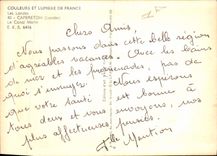 COULEURS ET LUMIERE DE FRANCE
Les Landes
40 - CAPBRETON (Landes)
C.E.S. 6416
Chers Amis,
Nous passons dans cette belle région
d'agréables vacances. Avec les bains
de mer et les promenades, pas de
quoi s'ennuyer. Nous espérons
que votre santé est bonne à
tous deux et vous envoyons, nos
plus affectueuses pensées.